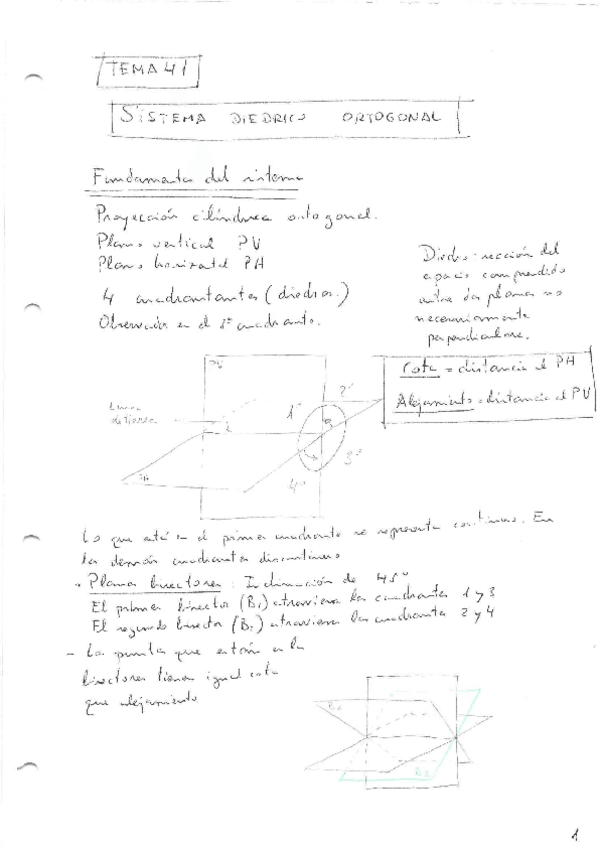 TEMA 41
SISTEMA DIEDRICO ORTOGONAL
Fundamentos del sistema
Proyección cilíndrica ortogonal.
Plano vertical PV
Plano horizontal PH
4 cuadrantantes (diedros.)
Observador en el 1º cuadrante.
Diedro: sección del
espacio comprendido
entre dos planos no
necesariamente
perpendiculares.
Cota = distancia al PH
Alejamiento = distancia al PV
PV
2º
1º
Linea
de tierra
3º
4º
PH
Lo que está en el primer cuadrante se representa continuo. En
los demás cuadrantes discontinuo
- Planos bisectores: Inclinación de 45º
El primer bisector (B1) atraviesa los cuadrantes 1 y 3
El segundo bisector (B2) atraviesa los cuadrantes 2 y 4
- Los puntos que están en los
bisectores tienen igual cota
que alejamiento
B2
1